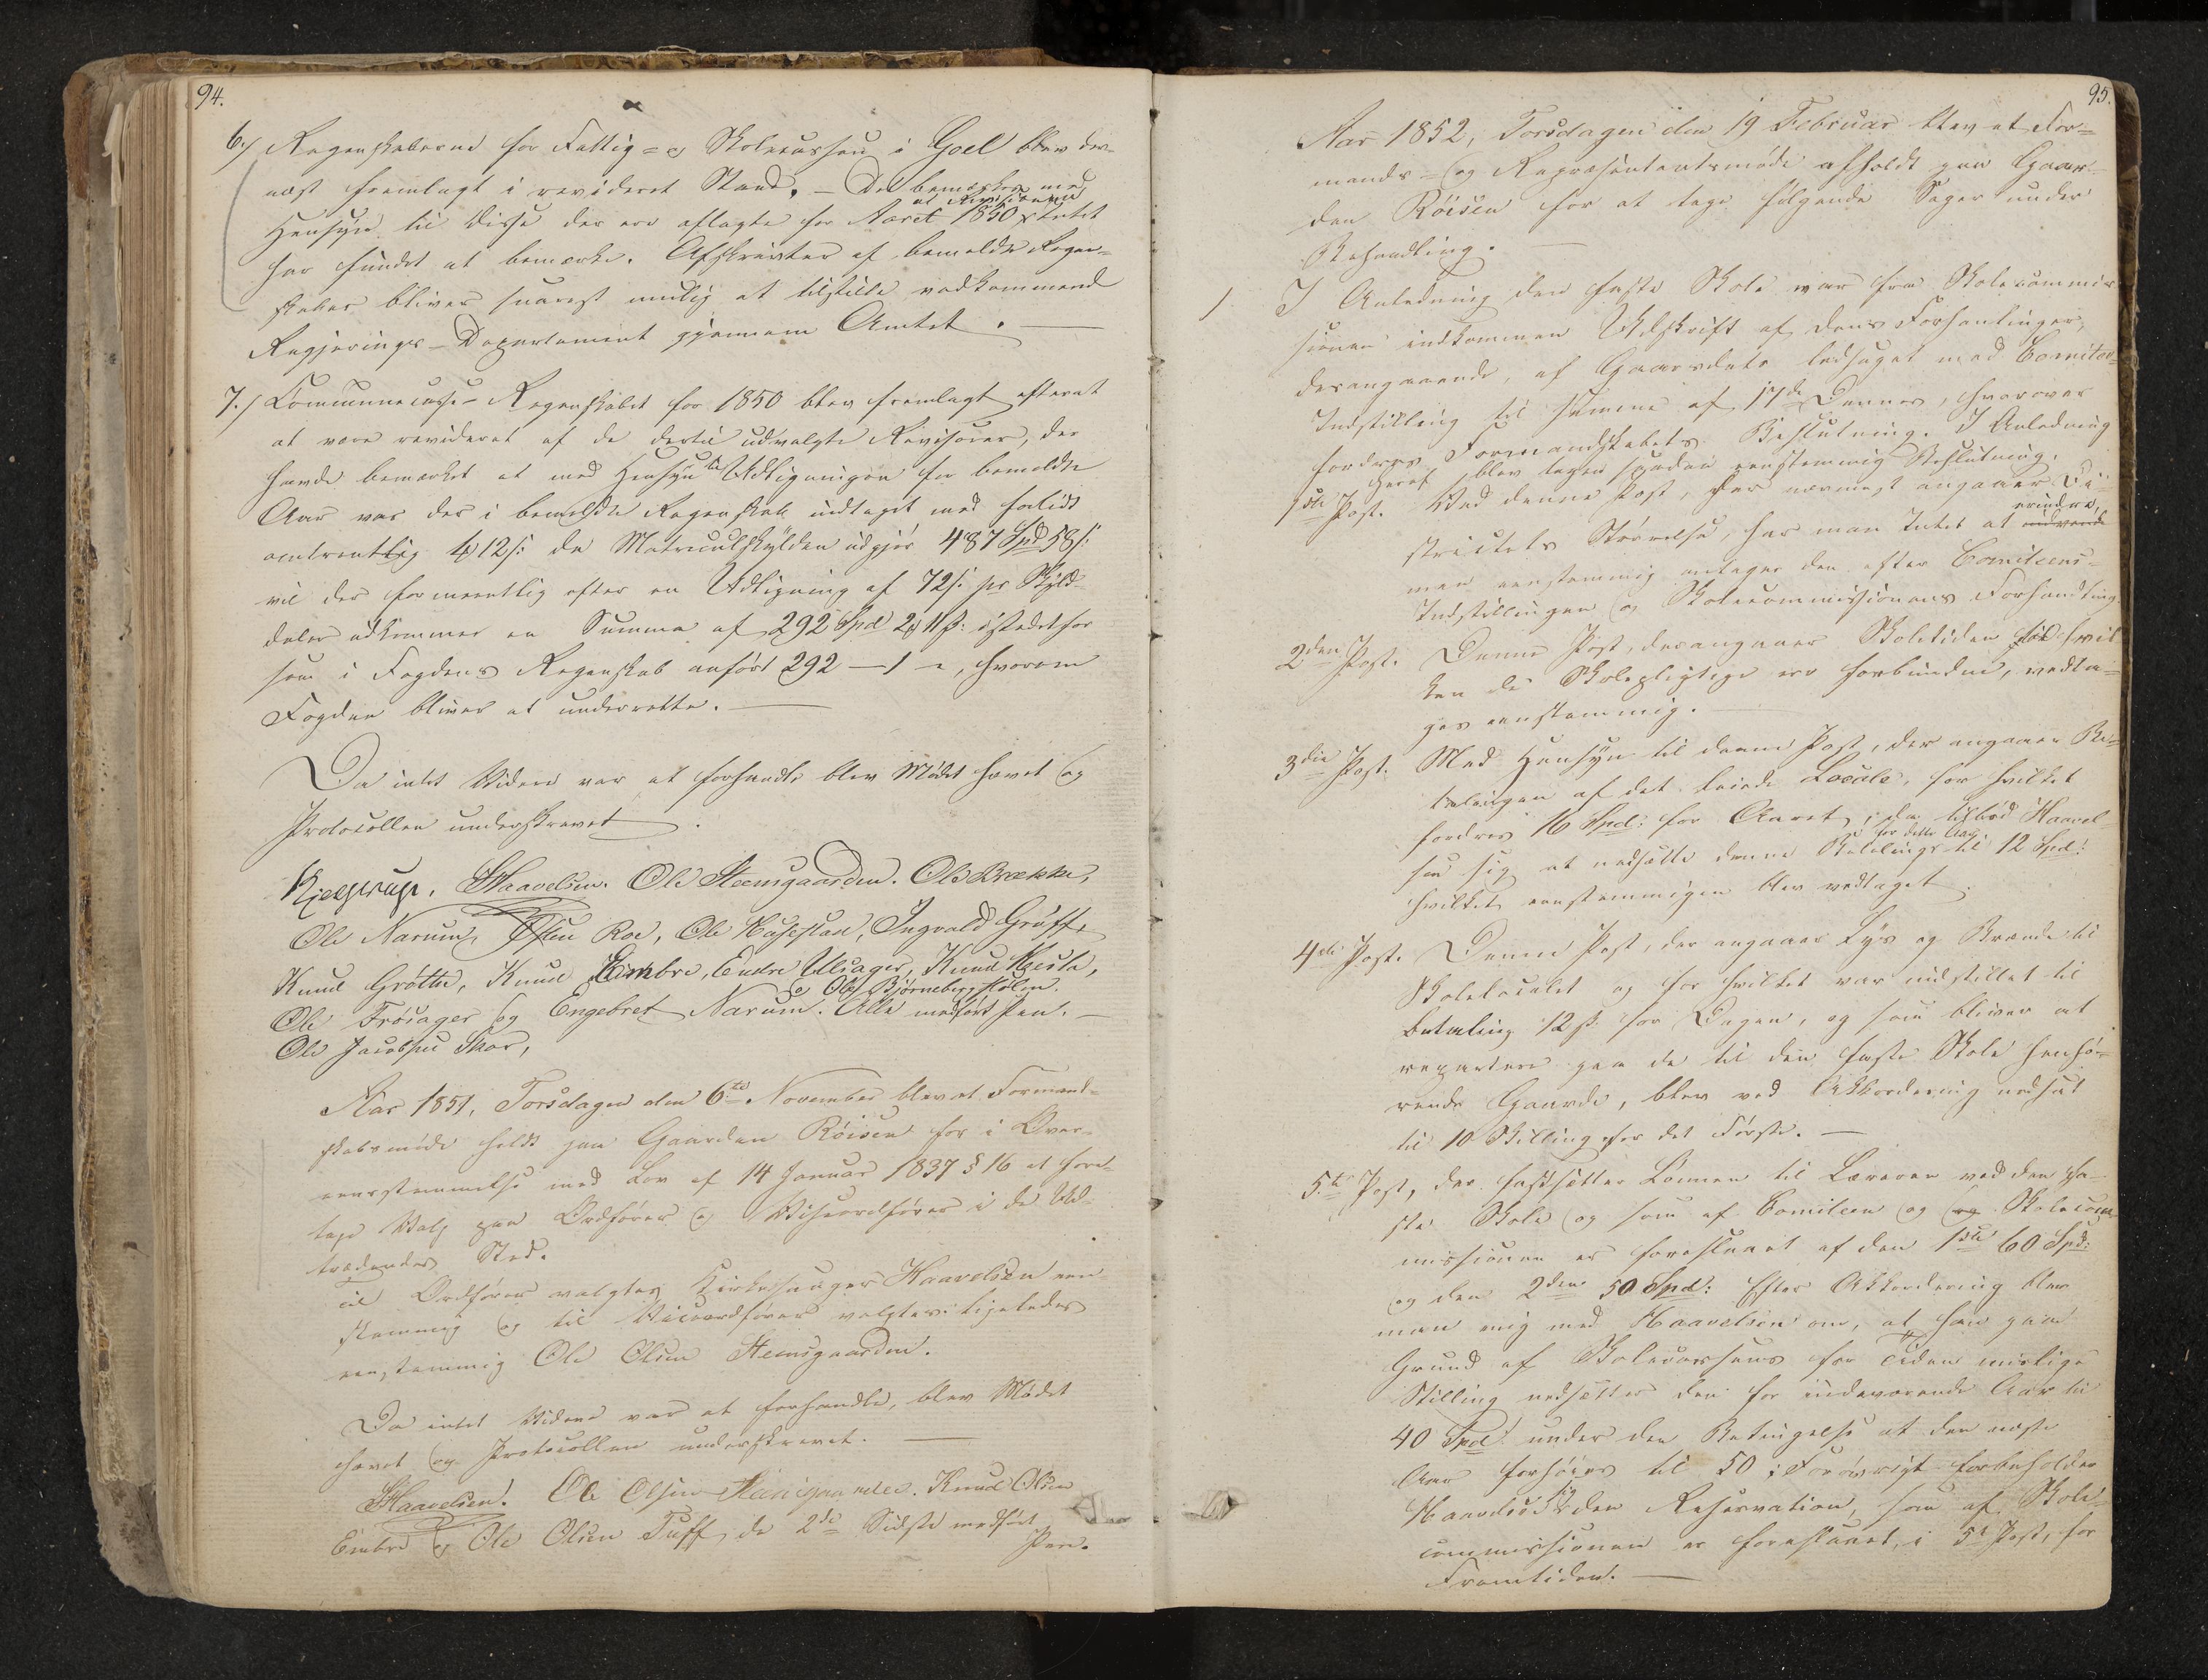 94.
6./ Regenskaberne for Fattig- og Skolecassen i Goel blev der-
næst fremlagt i revideret Stand. – Det bemærkes med
Hensyn til disse der ere aflagte for Aaret 1850 at Revisionen Intet
har fundet at bemærke. Afskrivter af bemeldte Regen-
skaber bliver snarest mulig at tilstille vedkommende
Regjerings-Departement gjennem Amtet. —
7./ Communecasse-Regnskabet for 1850 blev fremlagt efterat
at være revideret af de dertil udvalgte Revisorer, der
havde bemærket at med Hensyn til Udligningen for bemeldte
Aar var der i bemeldte Regenskab indtaget med
omtrentlig 4 12 s: da Matriculskylden udgjør 487 Spd 58 s:
vil der formeentlig efter en Udligning af 72 s: pr Skyld-
daler udkommer en Summa af 292 Spd 2 11 ß: istedetfor
som i Fogdens Regenskab anført 292 – 1 – , hvorom
Fogden bliver at underrette. —
Da intet Videre var at forhandle blev Mødet hævet og
Protocollen underskrevet.
Kjelstrup. Haavelsen. Ole Steensgaarden. Ole Brække,
Ole Narum, Østen Roe, Ole Huseslan, Ingvald Grøtte
Knud Grøtte, Knud Embre, Endre Ulsager, Knud
Ole Frøsager og Engebret Narum. og Ole Bjørnebergstølen. Alle medført Pen. —
Ole Jacobsen Skar,
Aar 1851, Torsdagen den 6te November blev et Formand-
skabsmøde holdt paa Gaarden Røisen for i Over-
eensstemmelse med Lov af 14 Januar 1837 § 16 at fore-
tage Valg paa Ordfører og Viseordfører i de Ud-
trædendes Sted.
Til Ordfører valgtes Kirkesanger Haavelsen een-
stemmig og til Viceordfører valgtes ligeledes
eenstemmig Ole Olsen Steensgaarden.
Da intet Videre var at forhandle, blev Mødet
hævet og Protocollen underskrevet. —
Haavelsen. Ole Olsen Steensgaarden. Knud Olsen
Embre og Ole Olsen Tuff, de 2de Sidste medført
Pen.
95.
Aar 1852, Torsdagen den 19 Februar blev et For-
mands- og Repræsentantsmøde afholdt paa Gaar-
den Røisen for at tage følgende Sager under
Behandling. —
1 I Anledning den faste Skole var fra Skolecommis-
sionen indkommen Udskrift af dens Forhandlinger,
desangaaende, af Gaarsdato ledsaget med Comitee-
Indstilling til samme af 17de Dennes, hvorover
fordres Formandskabets Beslutning. I Anledning
heraf blev tagen saadan eenstemmig Beslutning.
1ste Post. Ved denne Post, der nærmest angaaer Di-
strictets Størrelse, har man Intet at erindre,
men eenstemmig antager den efter Comiteens
Indstillingen og Skolecommissionens Forhandling
2den Post. Denne Post, desangaaer Skoletiden til hvil-
ken de Skolepligtige ere forbundne, vedta-
ges eenstemmig. —
3die Post. Med Hensyn til denne Post, der angaaer Be-
talingen af det leiede Locale, for hvilket
fordres 16 Spd: for Aaret, da tilbød Haavel-
sen sig at nedsætte denne Betaling for dette Aar til 12 Spd:
hvilket eenstemmigen blev vedtaget.
4de Post. Denne Post, der angaaer Lys og Brænde til
Skolelocalet og for hvilket var indstillet til
Betaling 12 ß. for Dagen, og som bliver at
repartere paa de til den faste Skole henhø-
rende Gaarde, blev ved Akkordering nedsat
til 10 Skilling for det Første. —
5te Post, der fastsætter Lønnen til Læreren ved den fa-
ste Skole og som af Comiteen og og Skolecom-
missionen er foreslaaet af den 1ste 60 Spd:
og den 2den 50 Spd: Efter Akkordering blev
man enig med Haavelsen om, at han paa
Grund af Skolecassens for Tiden mislige
Stilling nedsætter den for indeværende Aar til
40 Spd. under den Betingelse at den næste
Aar forhøies til 50; Forøvrigt forbeholder
Haavelsen sig den Reservation, som af Skole-
commissionen er foreslaaet, i 5te Post, for
Fremtiden. —